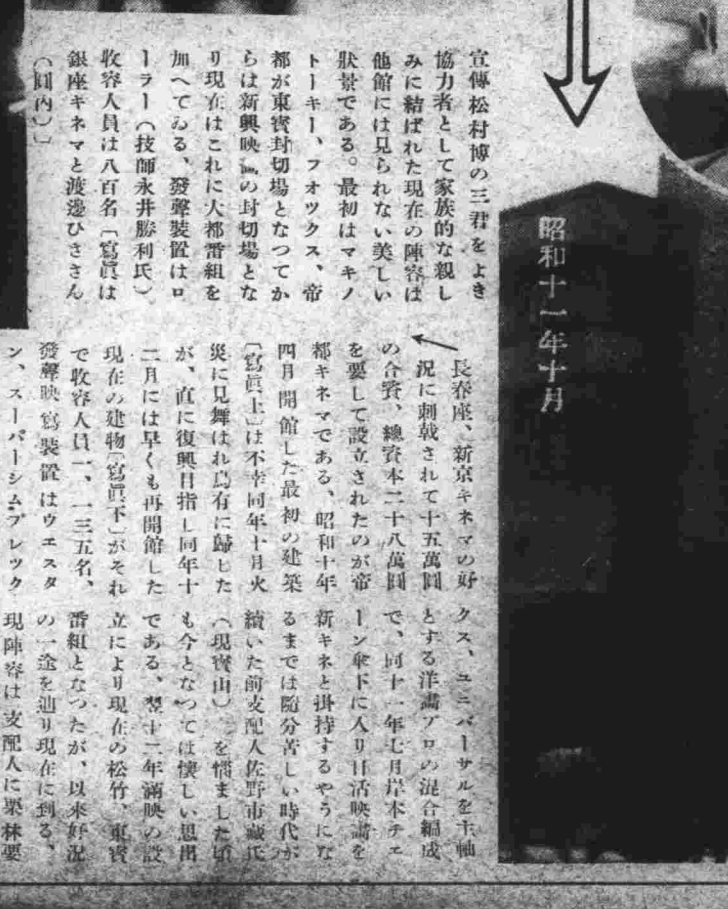 宣傳松村博の三君をよき
協力者として家族的な親し
みに結ばれた現在の陣容は
他館には見られない美しい
狀景である。最初はマキノ
トーキー、フオツクス、帝
都が東寶封切場となつてか
らは新興映畫の封切場とな
り現在はこれに大都番組を
加へてゐる、發聲裝置はロ
ーラー（技師永井勝利氏）、
收容人員は八百名〔寫眞は
銀座キネマと渡邊ひささん
（圓內）〕
昭和十一年十月
長春座、新京キネマの好
況に刺戟されて十五萬圓
の合資、總資本二十八萬圓
を要して設立されたのが帝
都キネマである、昭和十年
四月開館した最初の建築
〔寫眞上〕は不幸同年十月火
災に見舞はれ烏有に歸した
が、直に復興目指し同年十
二月には早くも再開館した
現在の建物〔寫眞下〕がそれ
で收容人員一、一三五名、
發聲映寫裝置はウエスタ
ン、スーパーシムプレツク
クス、ユニバーサルを主軸
とする洋畫プロの混合編成
で、同十一年七月岸本チエ
ーン傘下に入り日活映畫を
新キネと掛持するやうにな
るまでは隨分苦しい時代が
續いた前支配人佐野市藏氏
（現寶山）を惱ました頃
も今となつては懷しい思出
である、翌十二年滿映の設
立により現在の松竹、東寶
番組となつたが、以來好況
の一途を辿り現在に到る、
現陣容は支配人に栗林要